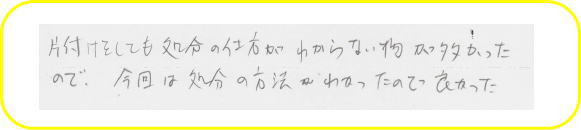 片付けをしても処分の仕方がわからない物が多かった
ので、今回は処分の方法がわかったので良かった